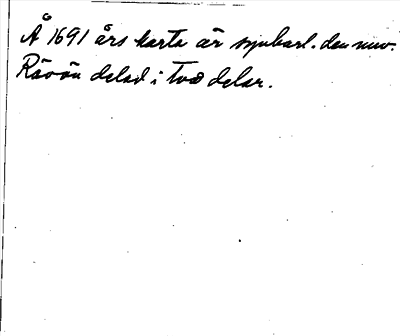 Å 1691 års karta är synbarl. den nuv.
Räoön delad i två delar.